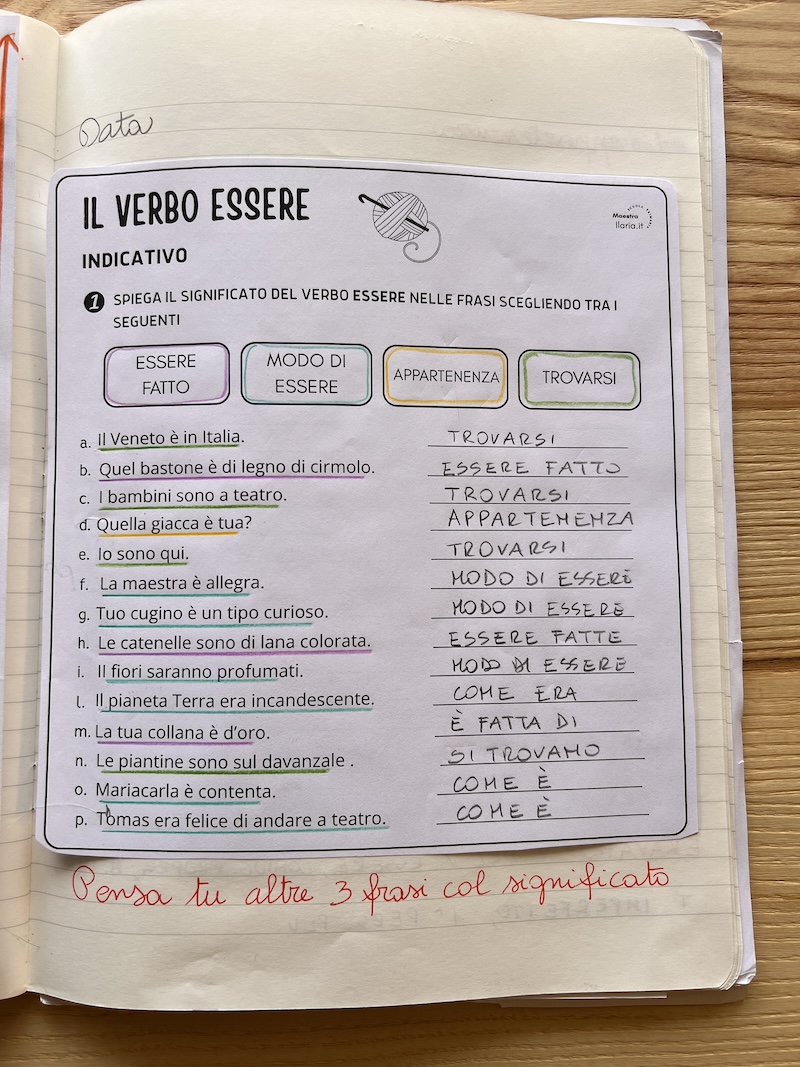 Data
IL VERBO ESSERE
SCUOLA PRIMARIA
Maestra
Ilaria.it
INDICATIVO
1 SPIEGA IL SIGNIFICATO DEL VERBO ESSERE NELLE FRASI SCEGLIENDO TRA I
SEGUENTI
ESSERE FATTO
MODO DI ESSERE
APPARTENENZA
TROVARSI
a. Il Veneto è in Italia. TROVARSI
b. Quel bastone è di legno di cirmolo. ESSERE FATTO
c. I bambini sono a teatro. TROVARSI
d. Quella giacca è tua? APPARTENENZA
e. Io sono qui. TROVARSI
f. La maestra è allegra. MODO DI ESSERE
g. Tuo cugino è un tipo curioso. MODO DI ESSERE
h. Le catenelle sono di lana colorata. ESSERE FATTE
i. Il fiori saranno profumati. MODO DI ESSERE
l. Il pianeta Terra era incandescente. COME ERA
m. La tua collana è d'oro. È FATTA DI
n. Le piantine sono sul davanzale . SI TROVANO
o. Mariacarla è contenta. COME È
p. Tomas era felice di andare a teatro. COME È
Pensa tu altre 3 frasi col significato